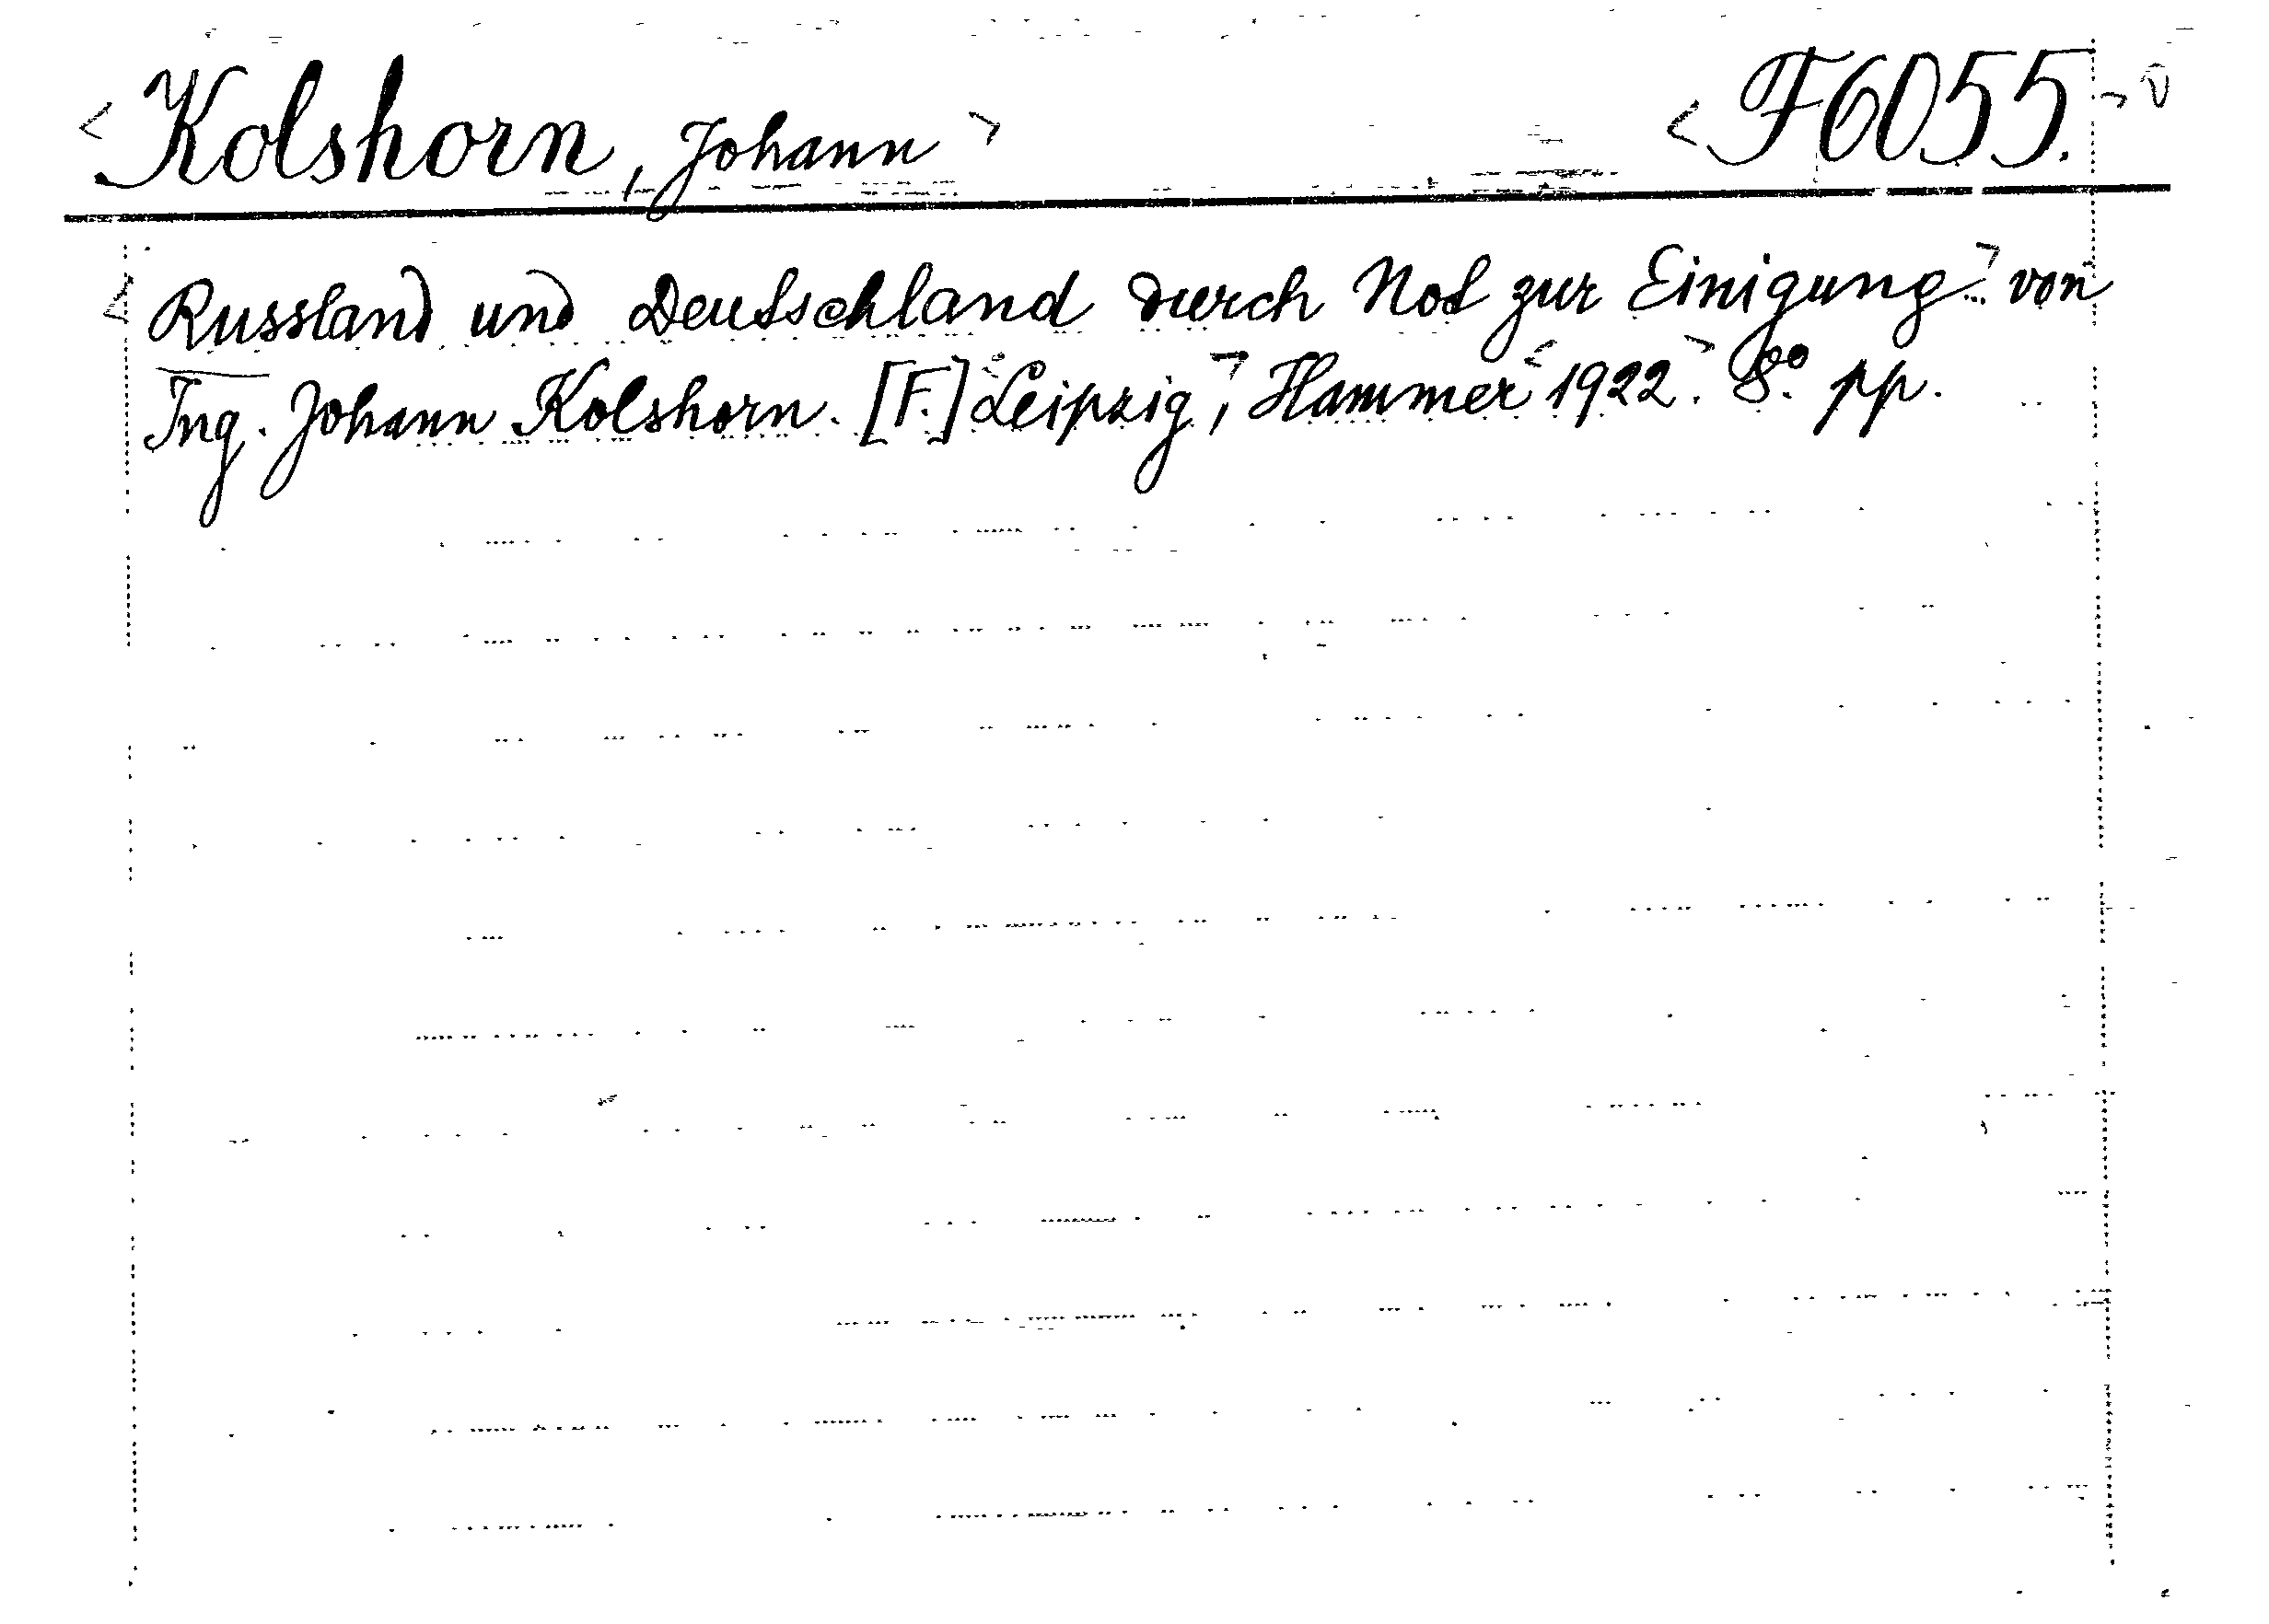 <Kolshorn, Johann> <F6055.>
<Russland und Deutschland durch Not zur Einigung>... von
Ing. Johann Kolshorn. [F.] <Leipzig>, Hammer <1922>. 8° pp.